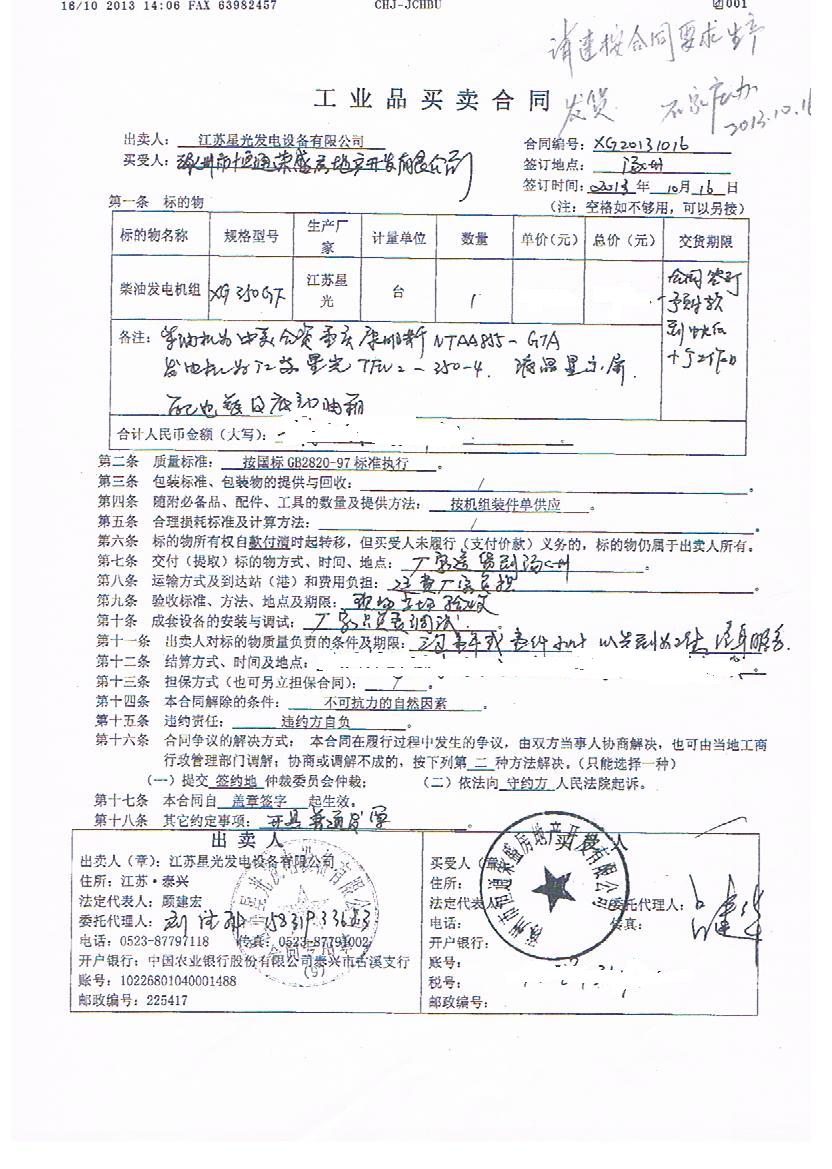 16/10 2013 14:06 FAX 63982457 CHJ-JCHBU 001
请速按合同要求生产
发货 石家庄办
2013.10.16
工业品买卖合同
出卖人: 江苏星光发电设备有限公司
合同编号: XG20131016
买受人: 涿州市恒通荣盛房地产开发有限公司
签订地点: 涿州
签订时间: 2013 年 10月 16 日
第一条 标的物 (注: 空格如不够用, 可以另接)
标的物名称 规格型号 生产厂家 计量单位 数量 单价(元) 总价(元) 交货期限
柴油发电机组 XG350GF 江苏星光 台 1
合同签订
预付款
到帐后
十个工作日
备注: 柴油机为中美合资重庆康明斯 NTAA855-G7A
发电机为江苏星光 TFW2-350-4. 液晶显示屏
配电瓶及底部油箱
合计人民币金额(大写):
第二条 质量标准: 按国标 GB2820-97 标准执行 。
第三条 包装标准、包装物的提供与回收: / 。
第四条 随附必备品、配件、工具的数量及提供方法: 按机组装件单供应 。
第五条 合理损耗标准及计算方法: / 。
第六条 标的物所有权自款付清时起转移, 但买受人未履行(支付价款)义务的, 标的物仍属于出卖人所有。
第七条 交付(提取)标的物方式、时间、地点: 厂家送货到涿州 。
第八条 运输方式及到达站(港)和费用负担: 运费厂家负担 。
第九条 验收标准、方法、地点及期限: 现场当场验收 。
第十条 成套设备的安装与调试: 厂家负责调试 。
第十一条 出卖人对标的物质量负责的条件及期限: 三包壹年或壹仟小时 以先到为准 终身服务.
第十二条 结算方式、时间及地点:
第十三条 担保方式(也可另立担保合同): / 。
第十四条 本合同解除的条件: 不可抗力的自然因素 。
第十五条 违约责任: 违约方自负 。
第十六条 合同争议的解决方式: 本合同在履行过程中发生的争议, 由双方当事人协商解决, 也可由当地工商
行政管理部门调解; 协商或调解不成的, 按下列第 二 种方法解决。(只能选择一种)
(一)提交 签约地 仲裁委员会仲裁; (二)依法向 守约方 人民法院起诉。
第十七条 本合同自 盖章签字 起生效。
第十八条 其它约定事项: 开具普通发票 。
出卖人
出卖人(章): 江苏星光发电设备有限公司
住所: 江苏·泰兴
法定代表人: 顾建宏
委托代理人:
电话: 0523-87797118 传真: 0523-87791002
开户银行: 中国农业银行股份有限公司泰兴市古溪支行
账号: 10226801040001488
邮政编号: 225417
买受人
买受人
住所:
法定代表人 委托代理人:
电话: 传真:
开户银行:
账号:
税号:
邮政编号:
涿州市恒通荣盛房地产开发有限公司
(9)